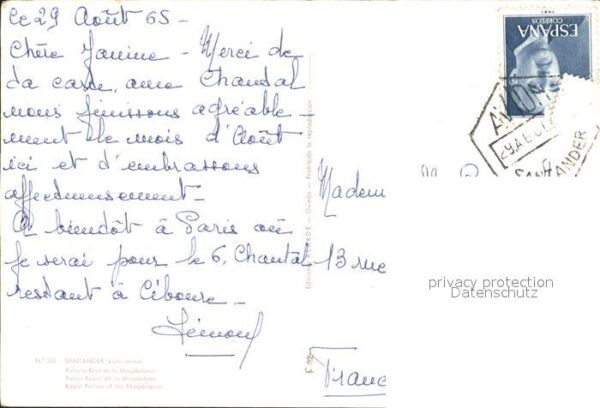 Ce 29 Août 65 -
Chère Janine - Merci de
ta carte, avec Chantal
nous finissons agréable -
ment le mois d'Août
ici et t'embrassons
affectueusement -
A bientôt à Paris où
je serai pour le 6, Chantal
restant à Ciboure -
Nº 331 - SANTANDER
Palacio Real de la Magdalena
Palais Royal de la Magdalena
Royal Palace of the Magdalena
Oviedo - Prohibida la reproducción
Madem
13 rue
Franc
ESPAÑA
CORREOS
AVION
SANTANDER
privacy protection
Datenschutz